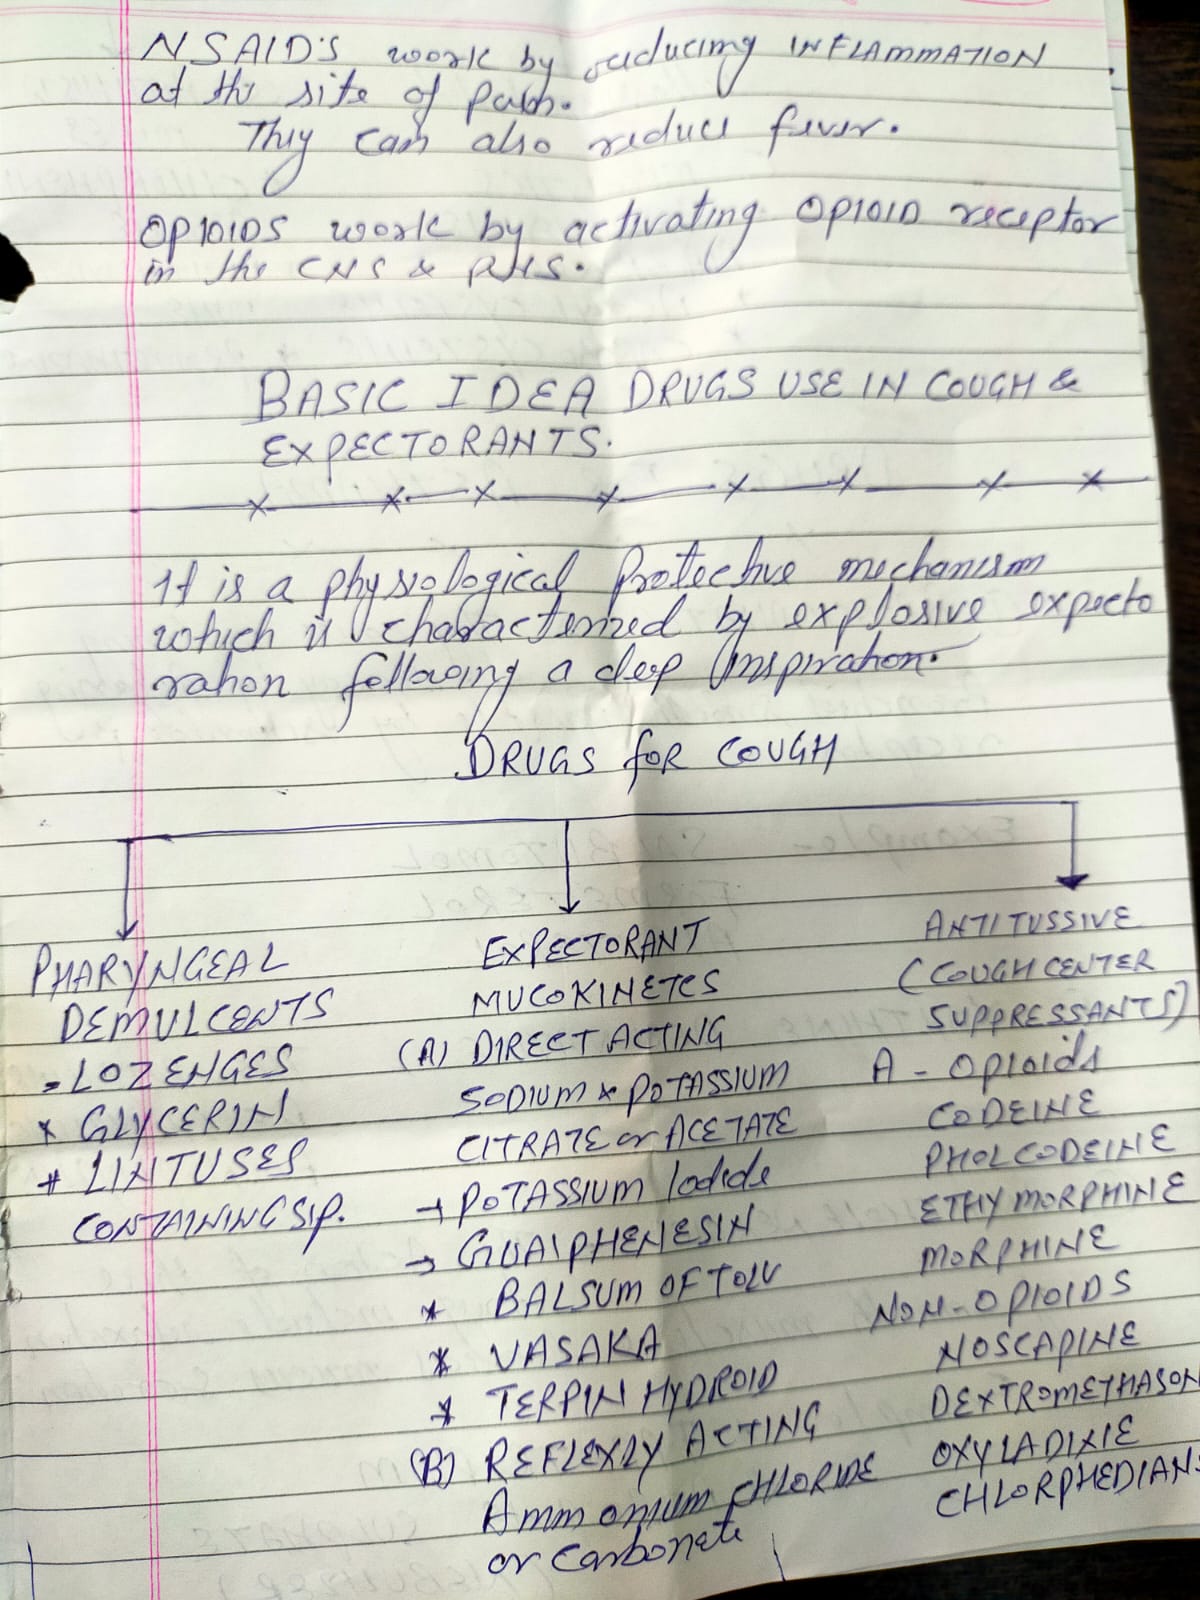 NSAID's work by reducing INFLAMMATION
at the site of pain.
They can also reduce fever.
OPIOIDS work by activating OPIOID receptor
in the CNS & PNS.
BASIC IDEA DRUGS USE IN COUGH &
EXPECTORANTS.
It is a physiological Protective mechanism
which is characterized by explosive expecto
ration following a deep inspiration.
DRUGS FOR COUGH
PHARYNGEAL
DEMULCENTS
- LOZENGES
* GLYCERIN
* LINTUSES
CONTAINING SIP.
EXPECTORANT
MUCOKINETCS
(A) DIRECT ACTING
SODIUM & POTASSIUM
CITRATE or ACETATE
→ POTASSIUM Iodide
→ GUAIPHENESIN
* BALSUM OF TOLU
* VASAKA
* TERPIN HYDROID
(B) REFLEXLY ACTING
Ammonium CHLORIDE
or Carbonate
ANTITUSSIVE
(COUGH CENTER
SUPPRESSANTS)
A - Opioids
CODEINE
PHOLCODEINE
ETHYMORPHINE
MORPHINE
NON-OPIOIDS
NOSCAPINE
DEXTROMETHASON
OXYLADIXIE
CHLORPHEDIANS